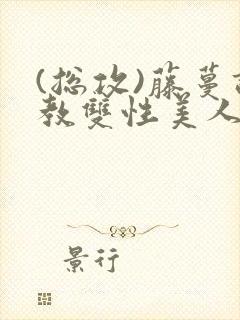 (总攻)藤蔓
教雙性美人
景行